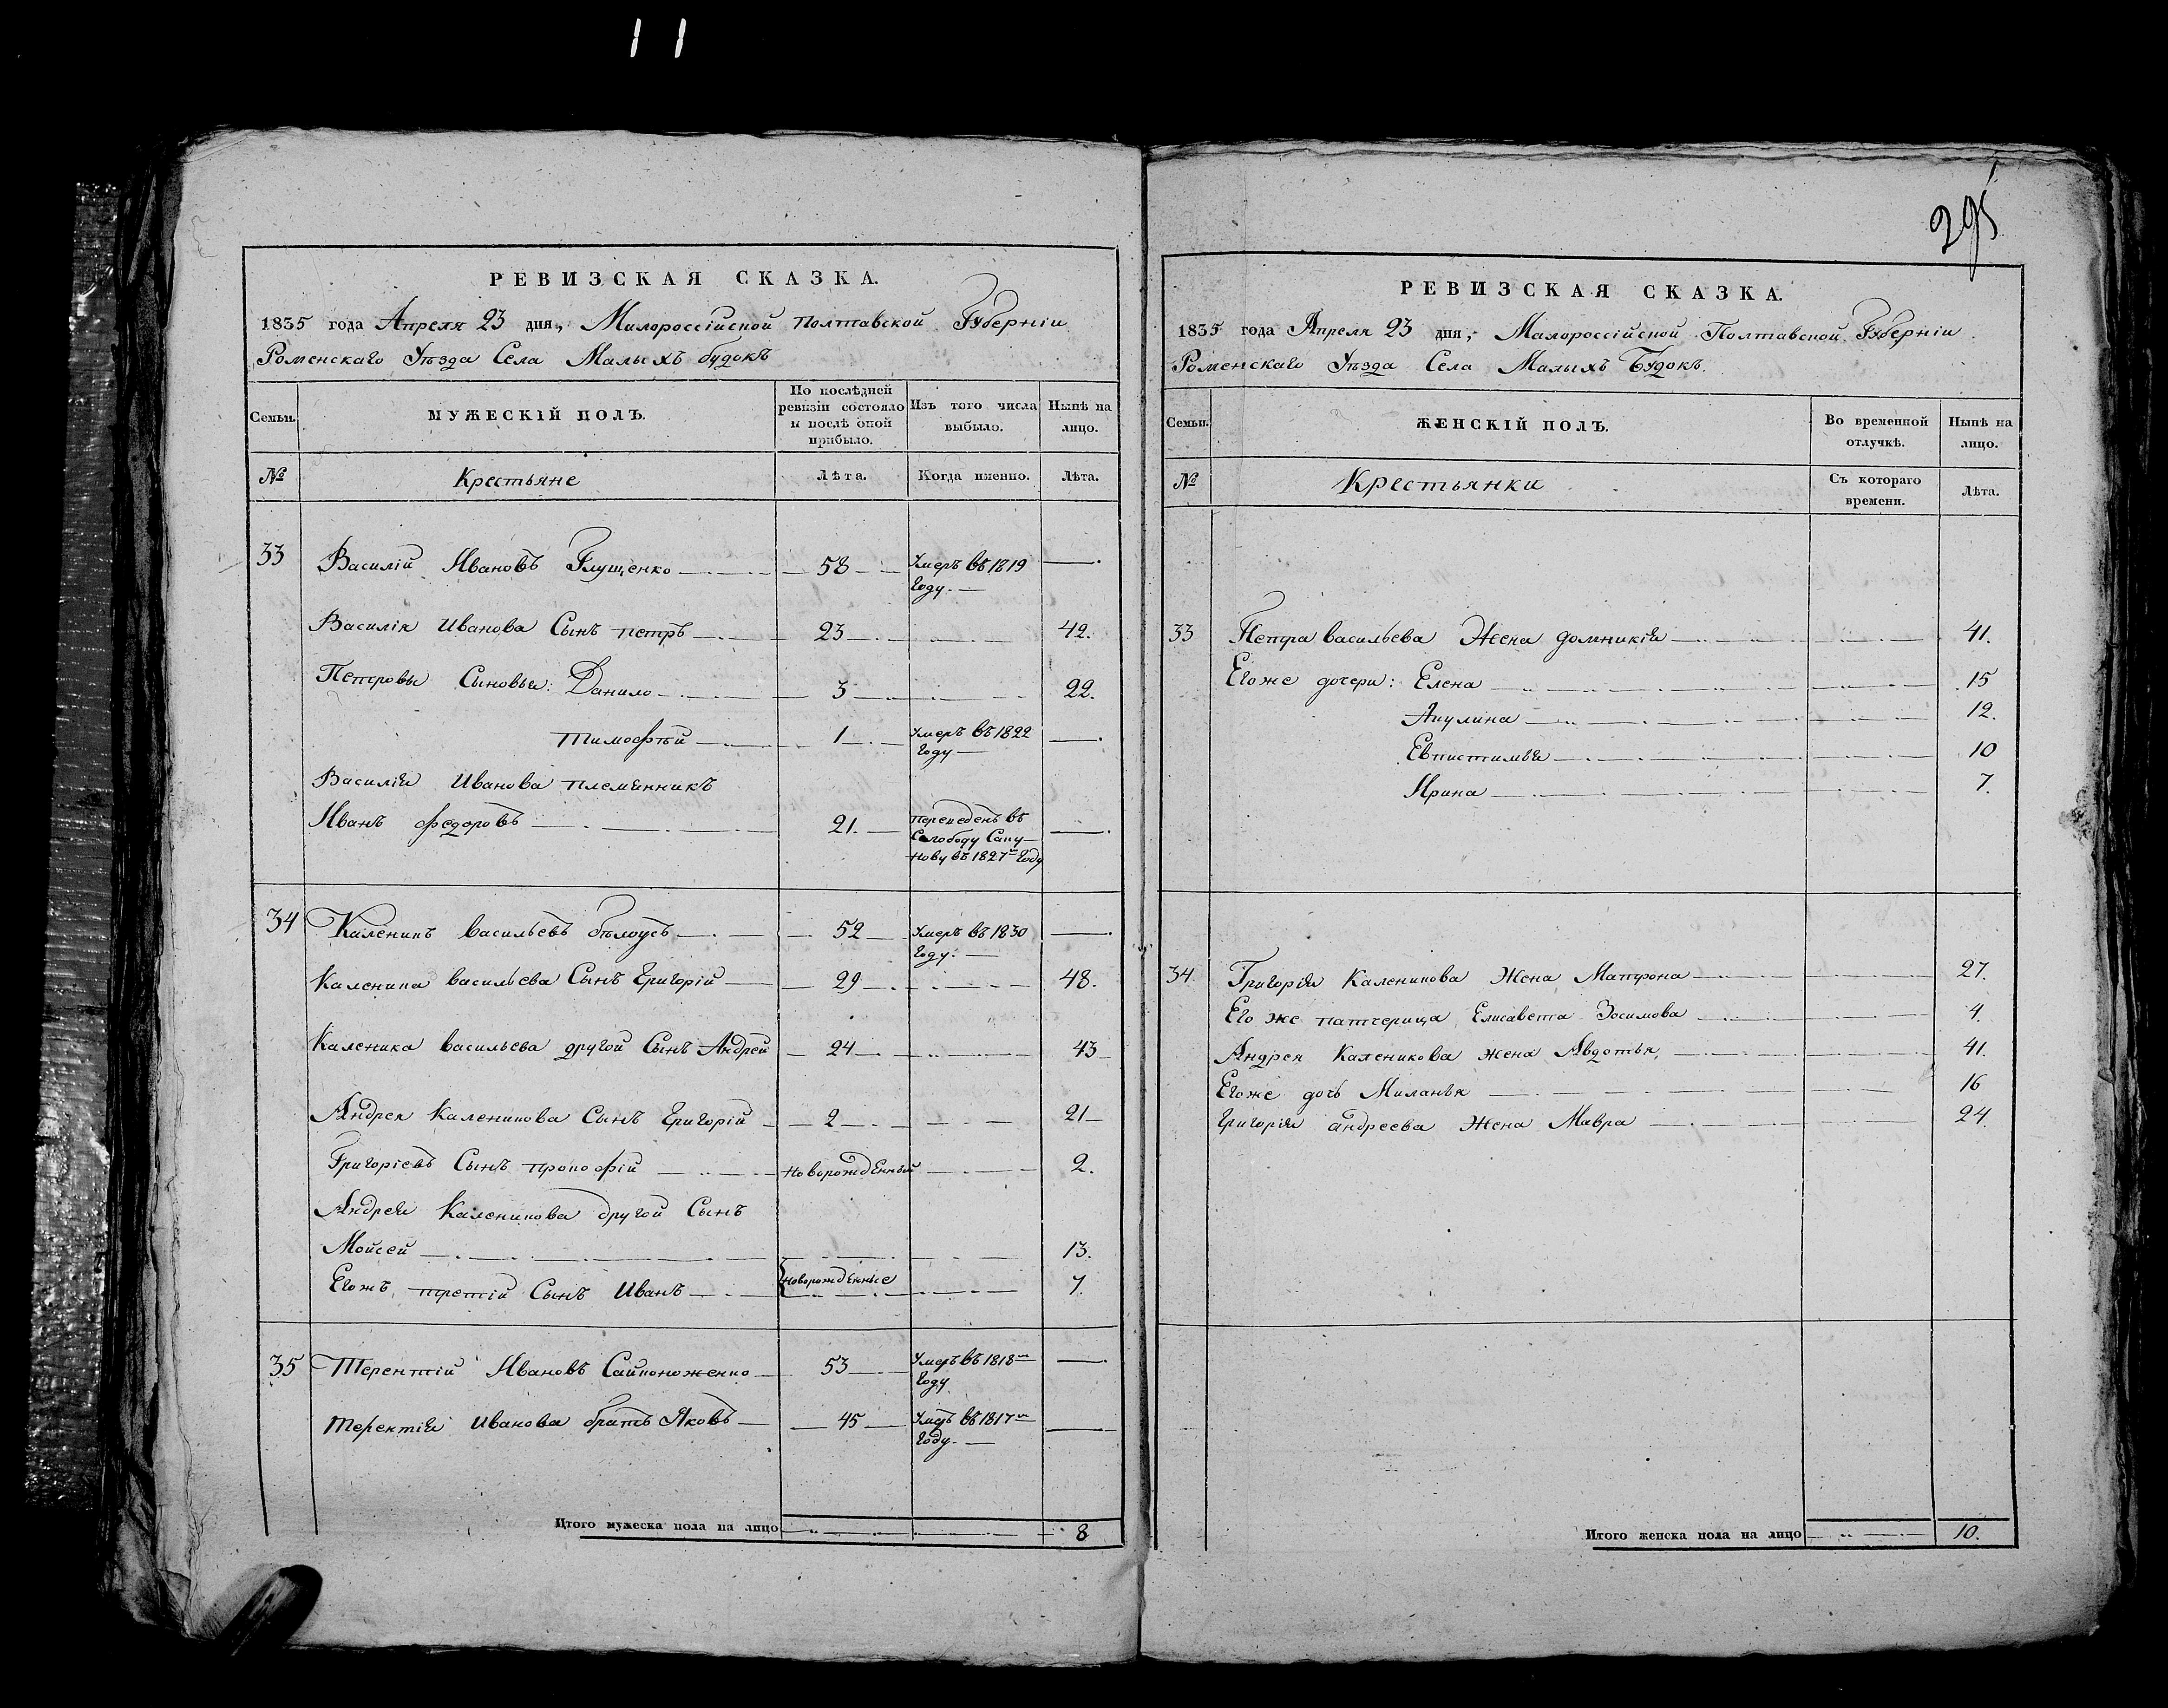 11
РЕВИЗСКАЯ СКАЗКА.
1835 года Апреля 23 дня, Малороссійской Полтавской Губерніи
Роменскаго Уѣзда Села Малыхъ будокъ
Семьи. МУЖЕСКІЙ ПОЛЪ. По послѣдней ревизіи состояло и послѣ оной прибыло. Изъ того числа выбыло. Нынѣ на лицо.
№ Крестьяне Лѣта. Когда именно. Лѣта.
33 Василій Ивановъ Глущенко 58 Умеръ въ 1819 Году.
Василія Иванова Сынъ петръ 23 42.
Петровы Сыновья: Данило 3 22.
тимофѣй 1 Умеръ въ 1822 Году
Василія Иванова племянникъ
Иванъ федоровъ 21. переведенъ въ Слободу Сапунову въ 1827м Году
34 Каленикъ васильевъ бѣлоусъ 52 Умеръ въ 1830 Году.
Каленика васильева Сынъ Григорій 29 48.
Каленика васильева другой Сынъ Андрей 24 43
Андрея Каленикова Сынъ Григорій 2 21
Григоріевъ Сынъ прокофій новорожденный 2.
Андрея Каленикова другой Сынъ
Мойсей 13.
Егожъ третій Сынъ Иванъ новорожденные 7.
35 Терентій Ивановъ 53 Умеръ въ 1818м Году
терентія Иванова братъ Яковъ 45 Умеръ въ 1817м Году.
Итого мужеска пола на лицо 8
295
РЕВИЗСКАЯ СКАЗКА.
1835 года Апреля 23 дня, Малороссійской Полтавской Губерніи
Роменскаго Уѣзда Села Малыхъ Будокъ.
Семьи. ЖЕНСКІЙ ПОЛЪ. Во временной отлучкѣ. Нынѣ на лицо.
№ Крестьянки Съ котораго времени. Лѣта.
33 Петра васильева Жена домникія 41.
Егоже дочери: Елена 15
Акулина 12.
Евпистимія 10
Ирина 7.
34. Григорія Каленикова Жена Матрона 27.
Его же патчерица Елисавета Зосимова 4.
Андрея Каленикова жена Авдотья 41.
Егоже дочь Миланья 16
григорія андреева Жена Мавра 24.
Итого женска пола на лицо 10.